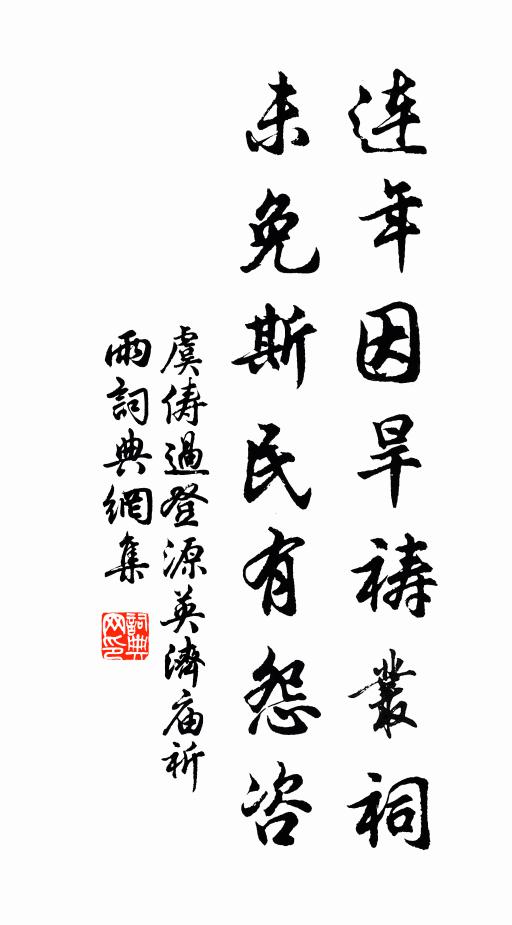 連年因旱禱叢祠
未免斯民有怨咨
虞儔過登源英濟庙祈
雨詞典網集
詞典网印